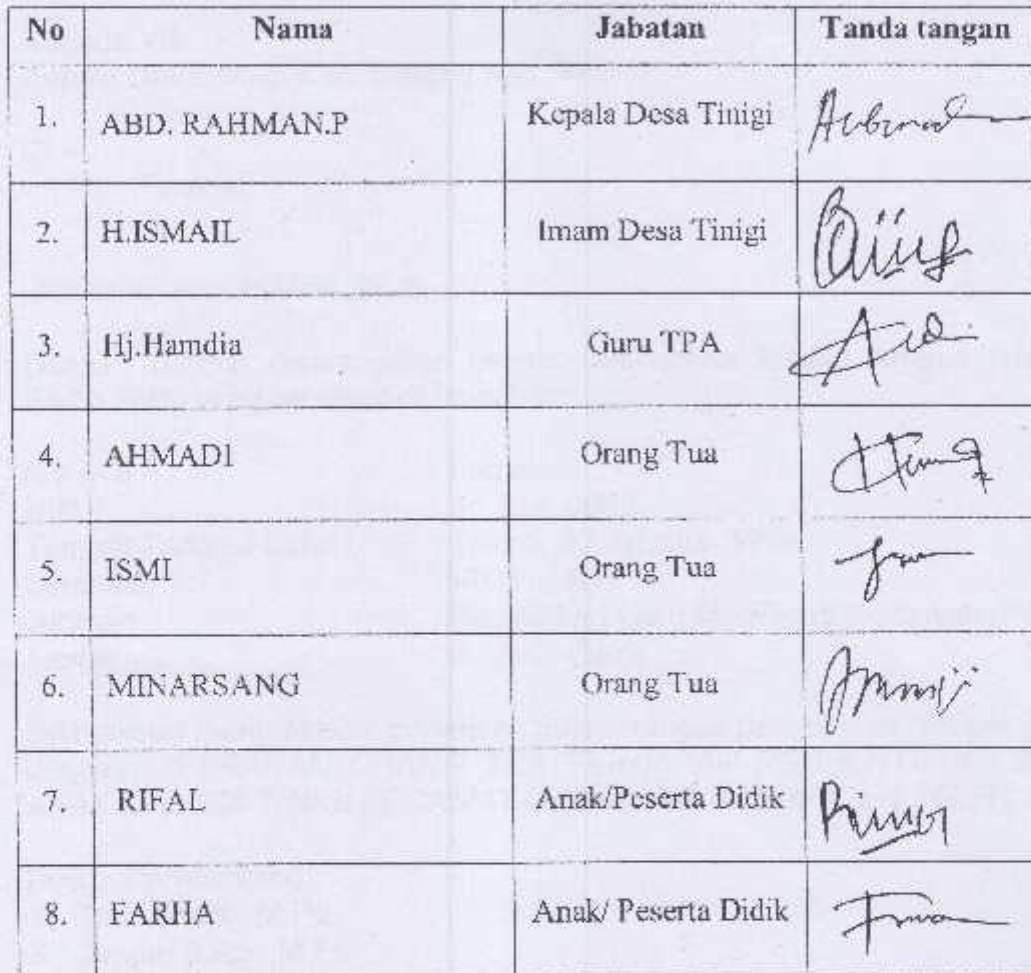 No Nama Jabatan Tanda tangan
1. ABD. RAHMAN.P Kepala Desa Tinigi
2. H.ISMAIL Imam Desa Tinigi
3. Hj.Hamdia Guru TPA
4. AHMADI Orang Tua
5. ISMI Orang Tua
6. MINARSANG Orang Tua
7. RIFAL Anak/Peserta Didik
8. FARHA Anak/ Peserta Didik